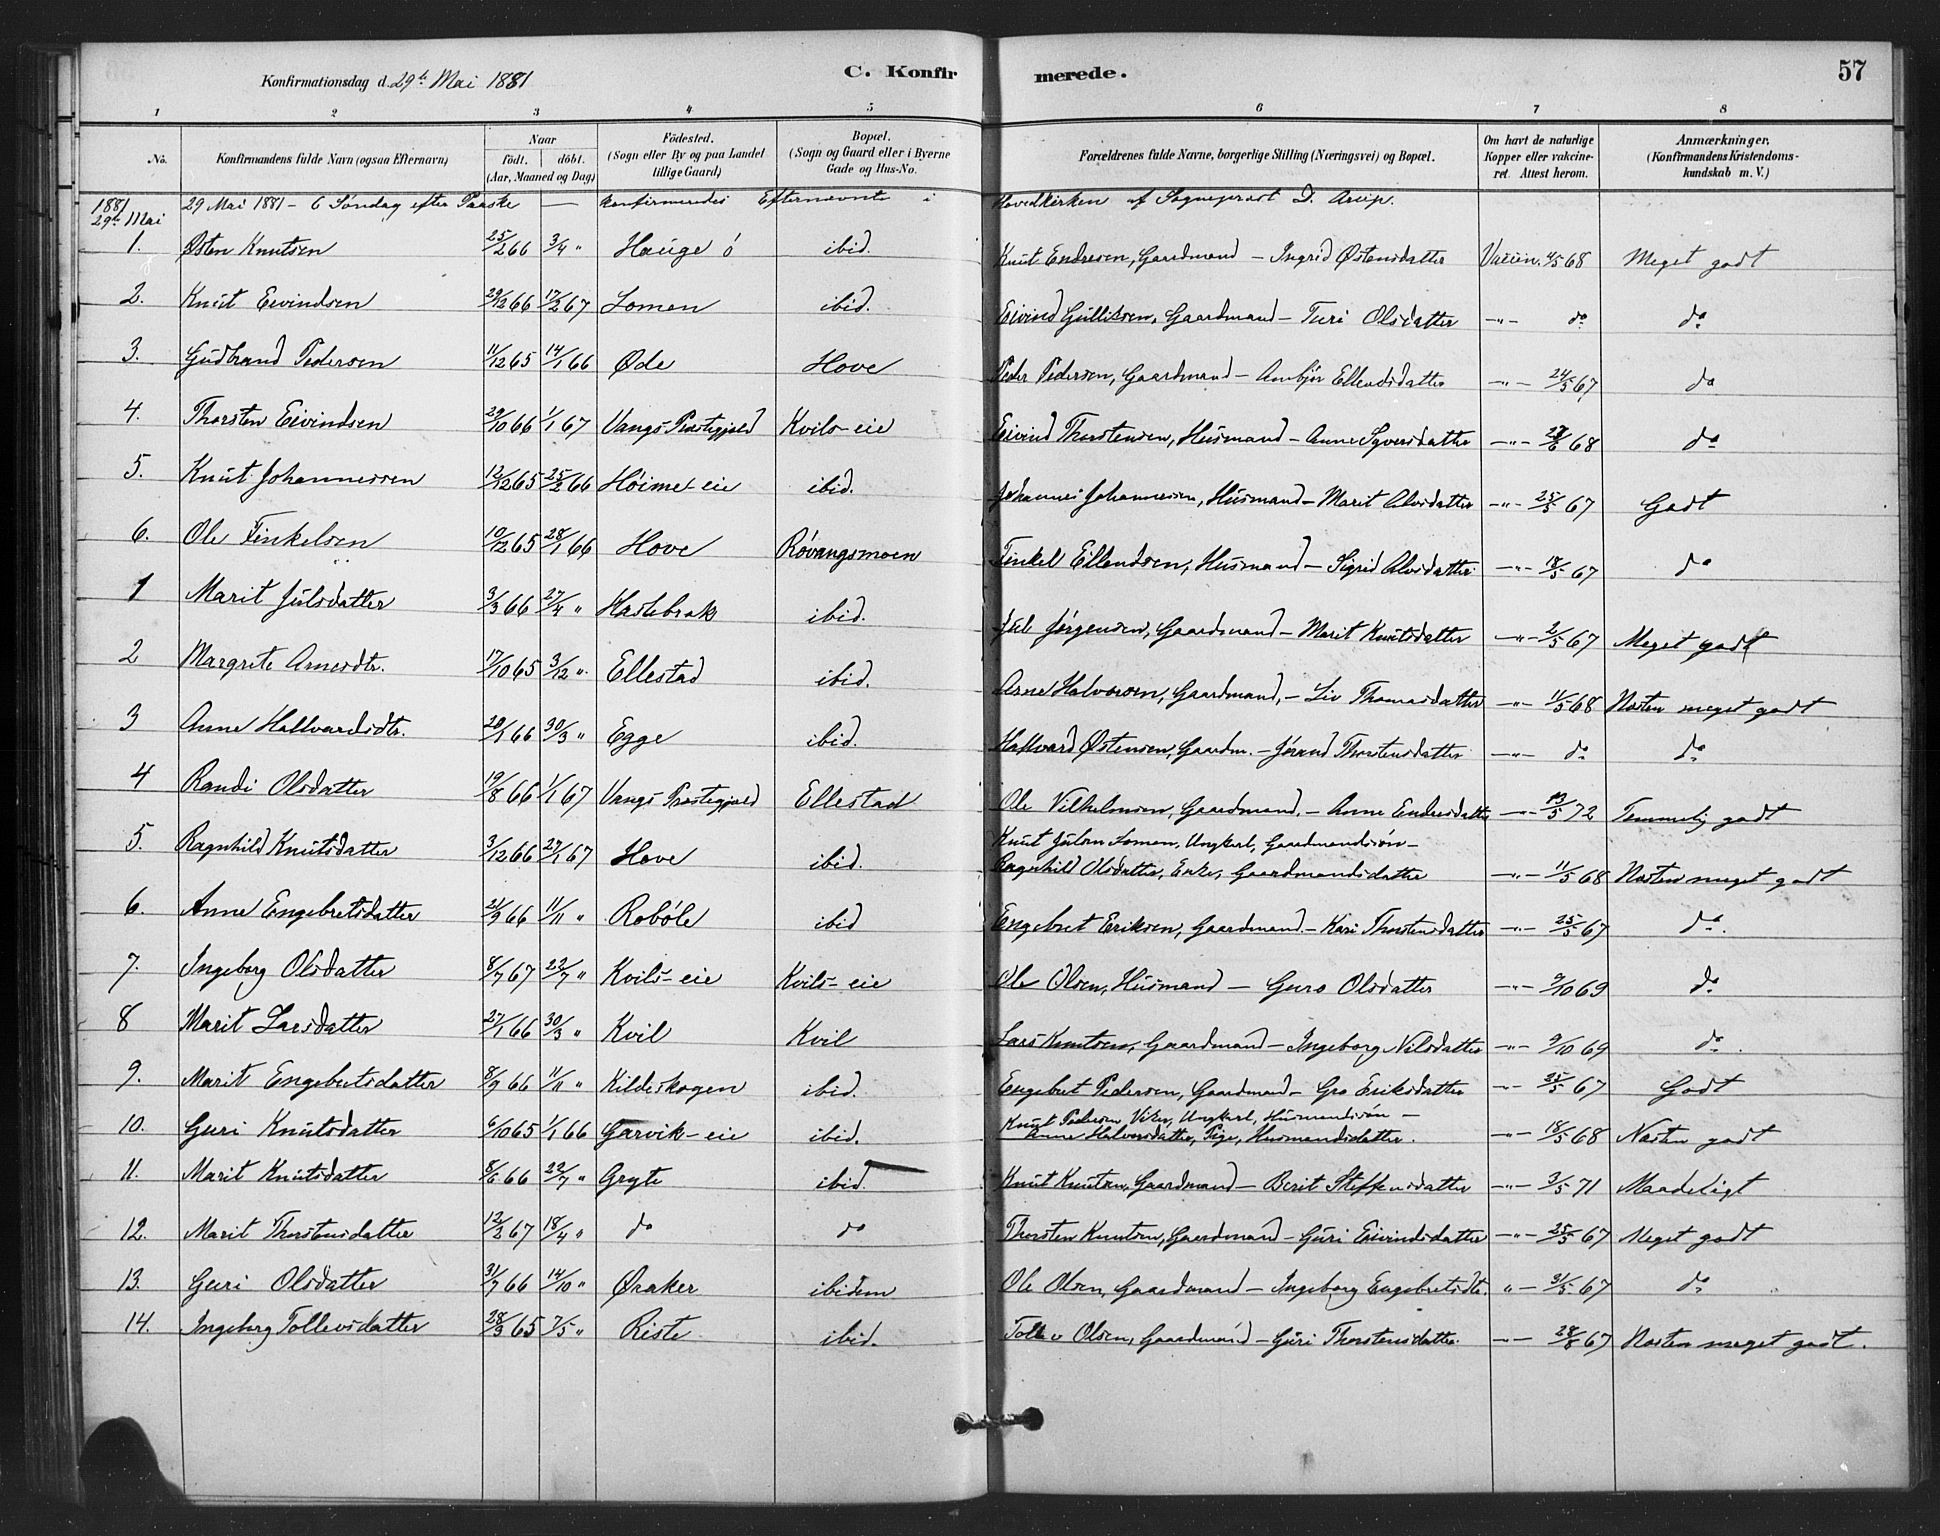 Konfirmationsdag d. 29de Mai 1881 C. Konfirmerede. 57
1 2 3 4 5 6 7 8
No. Konfirmandens fulde Navn (ogsaa Efternavn) Naar födt. döbt. (Aar, Maaned og Dag) Födested. (Sogn eller By og paa Landet tillige Gaard) Bopæl. (Sogn og Gaard eller i Byerne Gade og Hus-No. Forældrenes fulde Navne, borgerlige Stilling (Næringsvei) og Bopæl. Om havt de naturlige Kopper eller vakcineret. Attest herom. Anmærkninger, (Konfirmandens Kristendomskundskab m. V.)
1881 29de Mai 29 Mai 1881 – 6 Söndag efter Paaske — konfirmeredes Efternævnte i Hovedkirken af Sogneprest D.
1. Østen Knutsen 25/2 66 3/4 " Hauge ó ibid. Knut Endresen, Gaardmand – Ingrid Østensdatter Vaccin. 4/5 68 Meget godt
2. Knut Eivindsen 29/12 66 17/2 67 Lomen ibid. Eivind Gulliksen, Gaardmand – Turi Olsdatter –"– do do
3. Gudbrand Pedersen 11/12 65 14/1 66 Øde Hove Peder Pedersen, Gaardmand – Ambjör Ellendsdatter –"– 24/5 67 do
4. Thorsten Eivindsen 29/10 66 1/1 67 Vangs Prestegjeld Kvils-eie Eivind Thorstensen, Husmand – Anne Syversdatter –"– 68 do
5. Knut Johannessen 12/12 65 25/2 66 Höime-eie ibid. Johannes Johannessen, Husmand – Marit Alvsdatter –"– 25/5 67 Godt
6. Ole Finkelsen 10/12 65 28/1 66 Hove Rövangsmoen Finkel Ellendsen, Husmand – Sigrid Alvsdatter –"– 18/5 67 do
1 Marit Julsdatter 3/3 66 27/4 " Haslebrak ibid. Jul Jörgensen, Gaardmand – Marit Knutsdatter –"– 2/5 67 Meget godt
2 Margrete Arnesdtr. 17/10 65 3/12 " Ellestad ibid. Arne Halvorsen, Gaardmand, – Liv Thomasdatter –"– 11/5 68 Næsten meget godt
3 Anne Hallvardsdtr. 20/1 66 30/3 " Egge ibid. Hallvard Østensen, Gaardm. – Jörand Thorstensdatter –"– do do
4 Randi Olsdatter 19/8 66 1/1 67 Vangs Prestegjeld Ellestad Ole Vilhelmsen, Gaardmand. – Anne Endresdatter –"– 72 Temmelig godt
5. Ragnhild Knutsdatter 3/12 66 27/1 67 Hove ibid. Knut Julsen Lomen, Ungkarl, Gaardmandssön –
Ragnhild Olsdatter, Enke, Gaardmandsdatter –"– 11/5 68 Næsten meget godt
6. Anne Engebretsdatter 21/9 66 11/11 " Roböle ibid Engebret Eriksen, Gaardmand. – Kari Thorstensdatter –"– 25/5 67 do.
7. Ingeborg Olsdatter 8/7 67 22/7 " Kvils-eie Kvils-eie Ole Olsen, Husmand – Guro Olsdatter –"– 9/10 69 do
8 Marit Larsdatter 27/1 66 30/3 " Kvil Kvil Lars Knutsen, Gaardmand – Ingeborg Nilsdatter –"– 9/10 69 do.
9. Marit Engebretsdatter 8/9 66 11/11 " Kildeskogen ibid. Engebret Pedersen, Gaardmand – Gro Eriksdatter –"– 25/5 67 Godt
10. Guri Knutsdatter 6/10 65 1/1 66 Garvik-eie ibid. Knut Pedersen Viken, Ungkarl, Husmandssön –
Anne Halvorsdatter, Pige, Husmandsdatter. –"– 18/5 68 Næsten godt
11. Marit Knutsdatter 8/6 66 22/7 " Gryte ibid. Knut Knutsen, Gaardmand – Berit Steffensdatter –"– 3/5 71 Maadeligt
12. Marit Thorstensdatter 12/2 67 18/4 " do do Thorsten Knutsen, Gaardmand – Guri Eivindsdatter –"– 25/5 67 Meget godt
13. Guri Olsdatter 31/7 66 14/10 " Øraker ibidem Ole Olsen, Gaardmand – Ingeborg Engebretsdtr. " – 31/5 67 do
14. Ingeborg Tollevsdatter 28/3 65 7/5 " Riste ibid. Tollev Olsen, Gaardmand – Guri Thorstensdatter. –"– 28/8 67 Næsten meget godt.